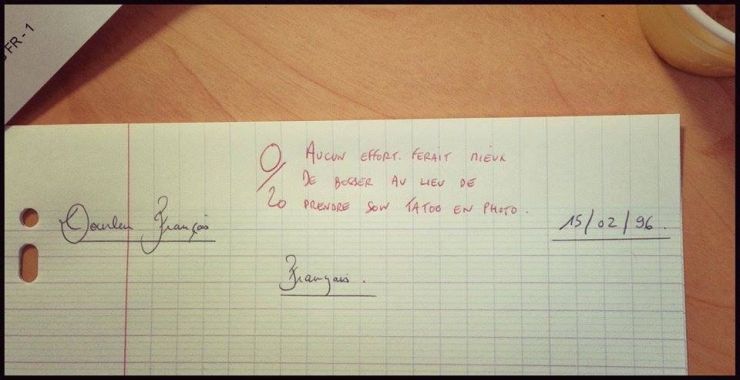 FR - 1
0/20
AUCUN EFFORT. FERAIT MIEUX
DE BOSSER AU LIEU DE
PRENDRE SON TATOO EN PHOTO.
François
15/02/96.
Français.